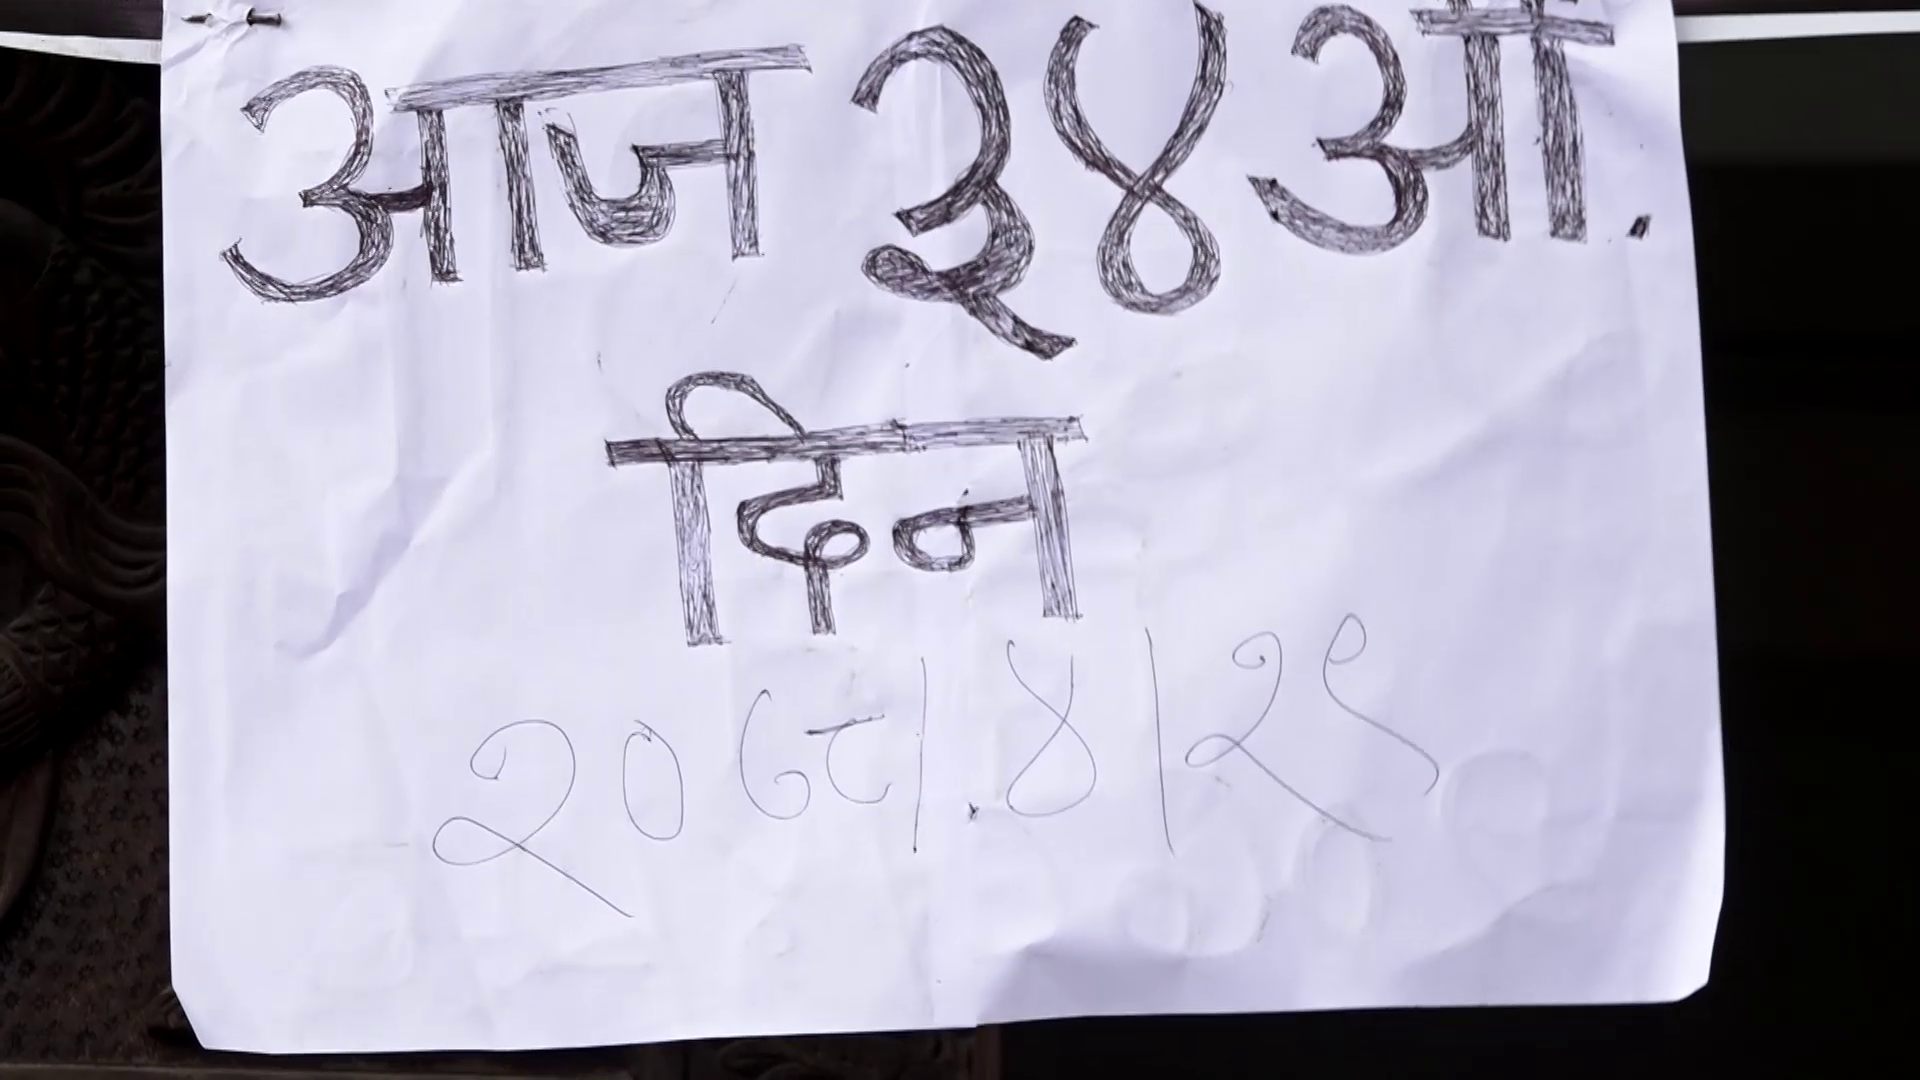 आज ३४औं.
दिन
२०७८।४।२९